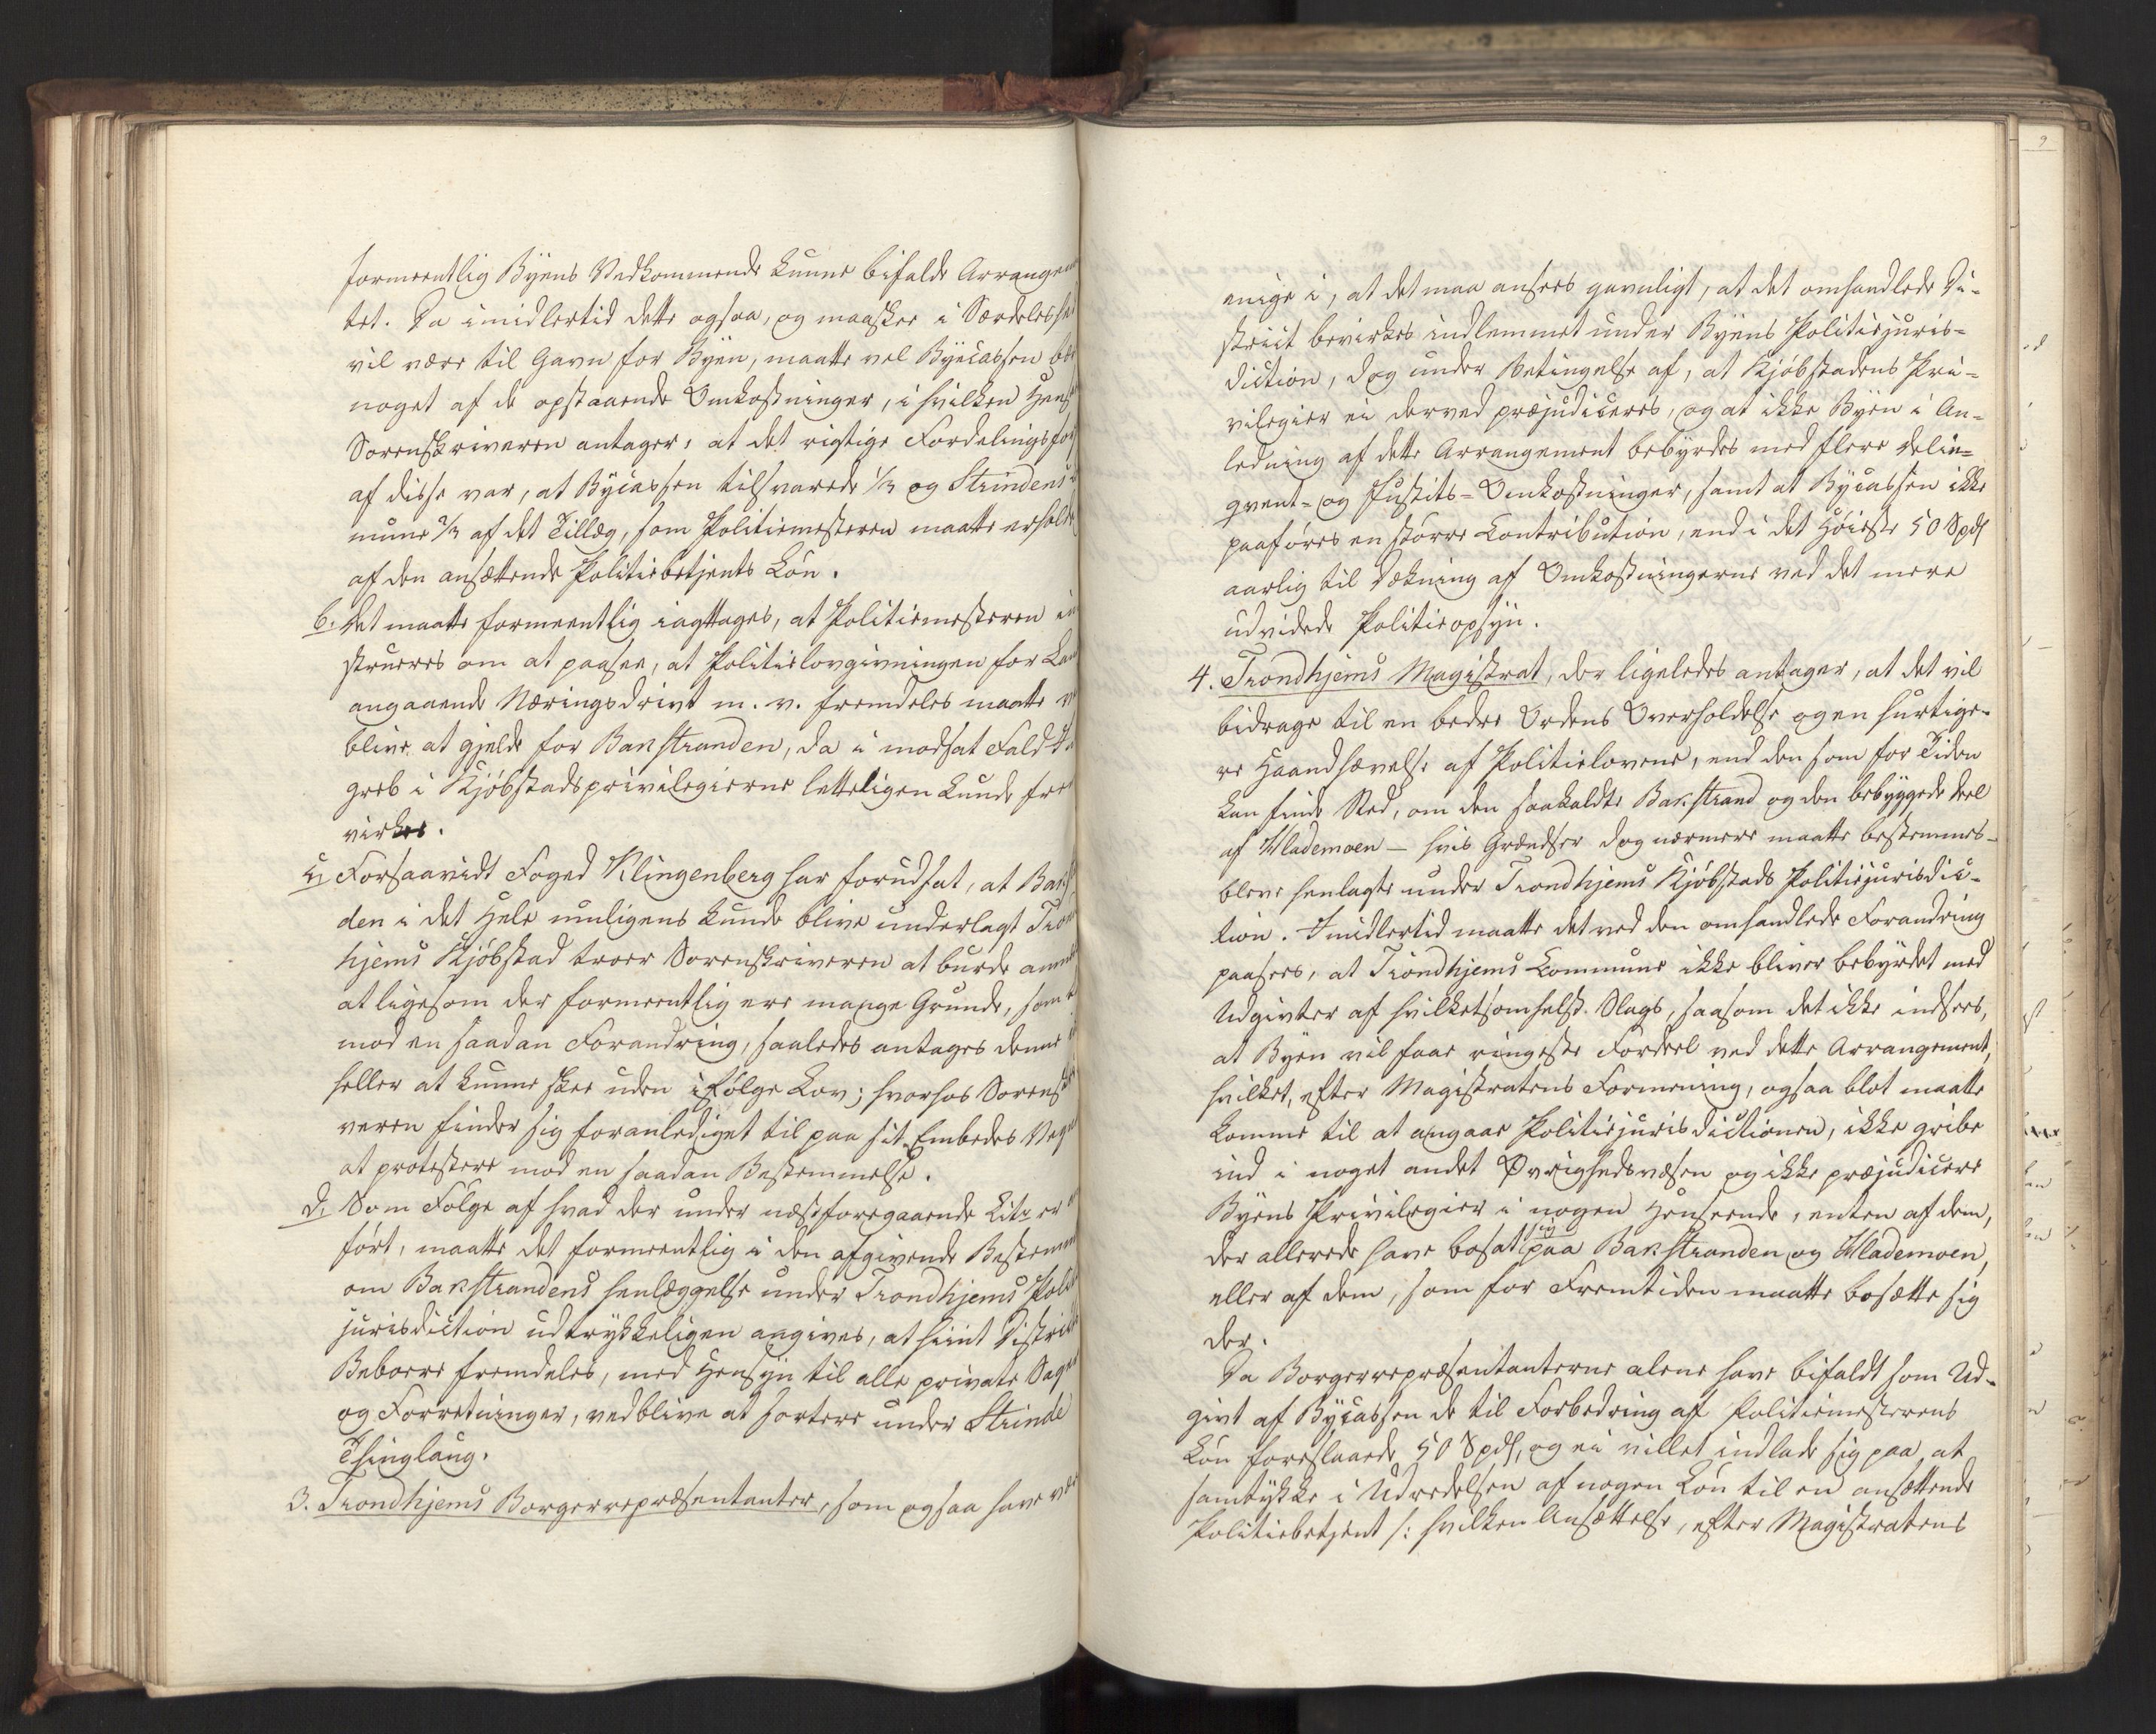 formeentlig Byens Vedkommende kunne bifalde Arrangem
tet. Da imidlertid dette ogsaa, og maaskee i Særdeleshe
vil være til Gavn for Byen, maatte vel Byecassen bær
noget af de opstaaende Omkostninger, i hvilken Hens
Sorenskriveren antager, at det rigtige Fordelingsfor
af disse var, at Bycassen tilsvarede 1/3 og Strindens
mune 2/3 af det Tillæg, som Politiemesteren maatte erholde
af den ansættende Politiebetjents Løn.
b. Det maatte formeentlig iagttages, at Politiemesteren in
strueres om at paasee, at Politielovgivningen for Lan
angaaende Næringsdrivt m. v. fremdeles maatte v
blive at gjelde for Bakstranden, da i modsat Fald
greb i Kjøbstadsprivilegierne letteligen kunde frem
virkes.
c, Forsaavidt Foged Klingenberg har forudsat, at Baks
den i det Hele muligens kunde blive underlagt Tron
hjems Kjøbstad troer Sorenskriveren at burde anm
at ligesom der formeentlig ere mange Grunde, som
mod en saadan Forandring, saaledes antages denne
heller at kunne skee uden ifølge Lov; hvorhos Sorensk
veren finder sig foranlediget til paa sit Embedes Vegn
at protestere mod en saadan Bestemmelse.
d, Som Følge af hvad der under næstforegaaende Litr er
ført, maatte det formeentlig i den afgivende Bestemm
om Bakstrandens Henlæggelse under Trondhjems Poli
jurisdiction udtrykkeligen angives, at hiint Distrikts
Beboere fremdeles, med Hensyn til alle private Sag
og Forretninger, vedblive at sortere under Strinde
Thinglaug.
3. Trondhjems Borgerrepræsentanter, som ogsaa have vær
enige i, at det maa ansees gavnligt, at det omhandlede Di-
strict bevirkes indlemmet under Byens Politiejuris-
diction, dog under Betingelse af, at Kjøbstadens Pri-
vilegier ei derved præjudiceres, og at ikke Byen i An-
ledning af dette Arrangement bebyrdes med flere Delin-
qvent- og Justits-Omkostninger, samt at Bycassen ikke
paaføres en større Contribution, end i det Høieste 50 Spd
aarlig til Dækning af Omkostningerne ved det mere
udvidede Politieopsyn.
4. Trondhjems Magistrat, der ligeledes antager, at det vil
bidrage til en bedre Ordens Overholdelse og en hurtige-
re Haandhævelse af Politielovene, end den som for Tiden
kan finde Sted, om den saakaldte Bakstrand og den bebyggede Deel
af Hlademoen - hvis Grændser dog nærmere maatte bestemmes -
bleve henlagte under Trondhjems Kjøbstads Politiejurisdic-
tion. Imidlertid maatte det ved den omhandlede Forandring
paasees, at Trondhjems Commune ikke bliver bebyrdet med
Udgivter af hvilketsomhelst Slags, saasom det ikke indsees,
at Byen vil faae ringeste Fordeel ved dette Arrangement,
hvilket, efter Magistratens Formening, ogsaa blot maatte
komme til at angaae Politiejurisdictionen, ikke gribe
ind i noget andet Øvrighedsvæsen og ikke præjudicere
Byens Privilegier i nogen Henseende, enten af dem,
der allerede have bosat sig paa Bakstranden og Hlademoen,
eller af dem, som for Fremtiden maatte bosætte sig
der.
Da Borgerrepræsentanterne alene have bifaldt som Ud-
givt af Bycassen de til Forbedring af Politiemesterens
Løn foreslaaede 50 Spd, og ei villet indlade sig paa at
samtykke i Udredelsen af nogen Løn til en ansættende
Politiebetjent /: hvilken Ansættelse, efter Magistratens